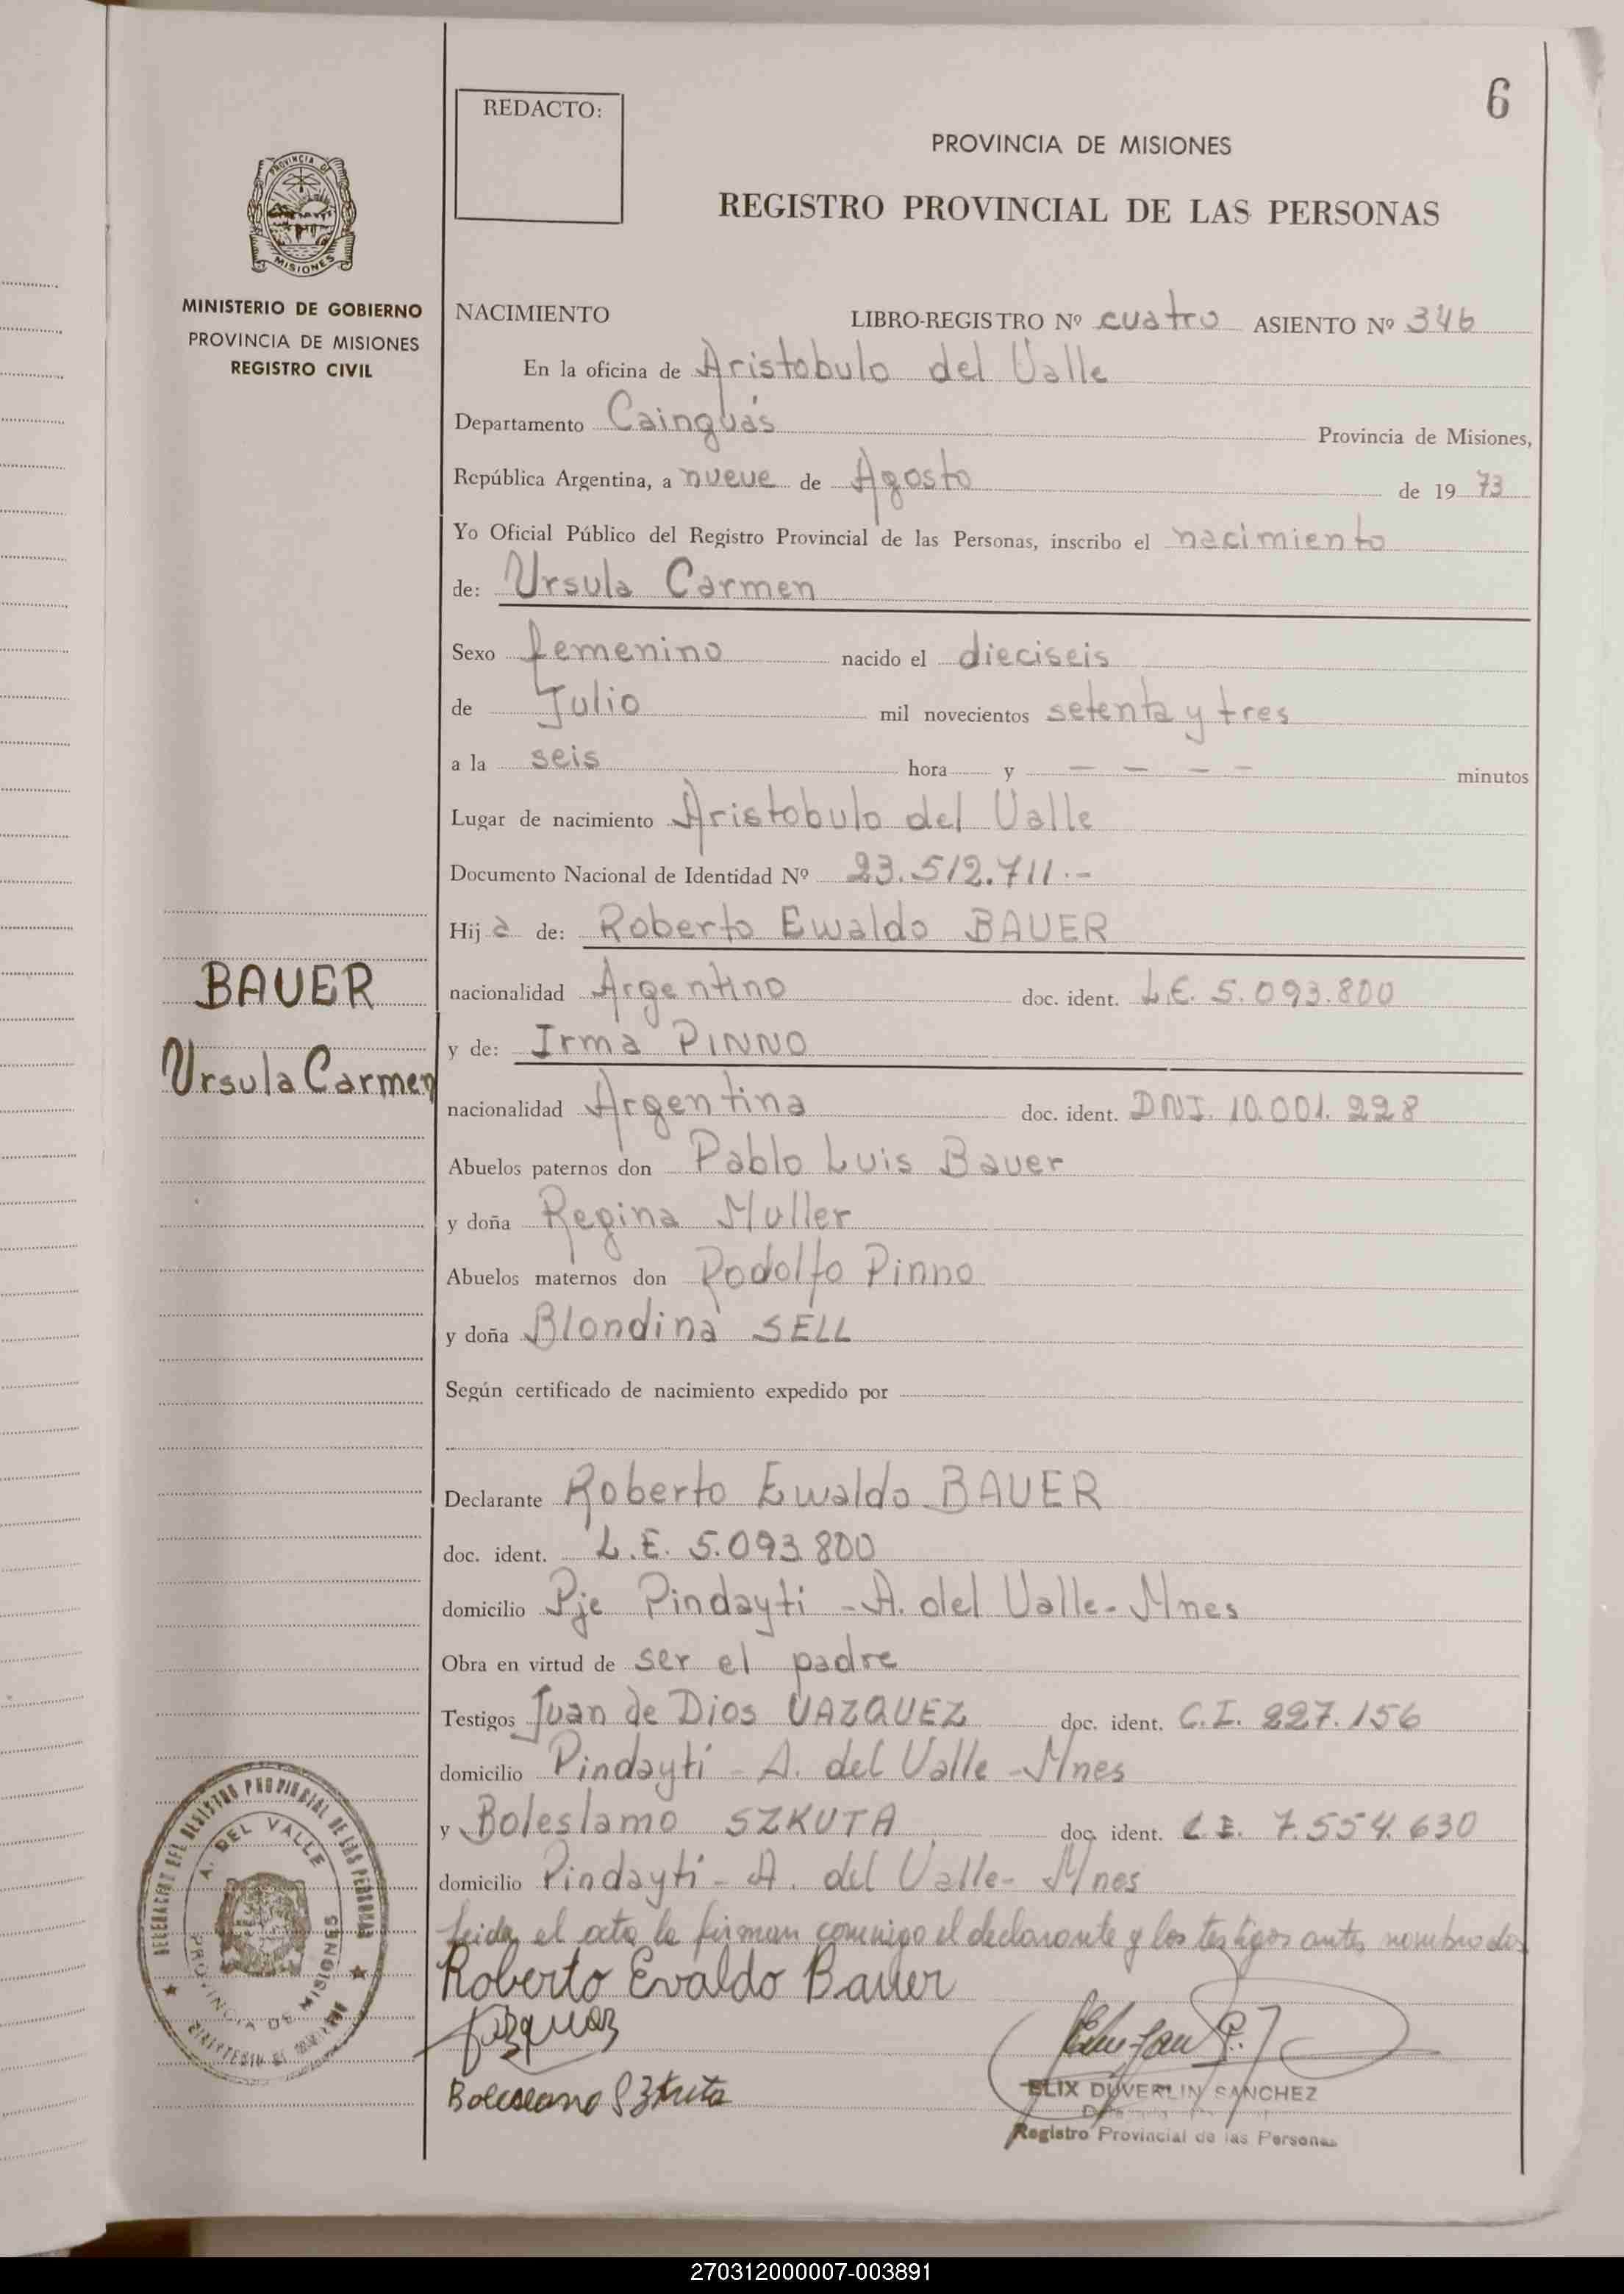 6
REDACTO:
PROVINCIA DE MISIONES
REGISTRO PROVINCIAL DE LAS PERSONAS
PROVINCIA DE
MISIONES
MINISTERIO DE GOBIERNO
PROVINCIA DE MISIONES
REGISTRO CIVIL
NACIMIENTO LIBRO-REGISTRO Nº cuatro ASIENTO Nº 346
En la oficina de Aristobulo del Valle
Departamento Cainguás Provincia de Misiones,
República Argentina, a nueve de Agosto de 1973
Yo Oficial Público del Registro Provincial de las Personas, inscribo el nacimiento
de: Ursula Carmen
Sexo femenino nacido el dieciseis
de Julio mil novecientos setenta y tres
a la seis hora y — — — — minutos
Lugar de nacimiento Aristobulo del Valle
Documento Nacional de Identidad Nº 23.512.711.-
Hija de: Roberto Ewaldo BAUER
nacionalidad Argentino doc. ident. L.E. 5.093.800
y de: Irma PINNO
nacionalidad Argentina doc. ident. DNI. 10.001.228
Abuelos paternos don Pablo Luis Bauer
y doña Regina Muller
Abuelos maternos don Rodolfo Pinno
y doña Blondina SELL
Según certificado de nacimiento expedido por
Declarante Roberto Ewaldo BAUER
doc. ident. L.E. 5.093.800
domicilio Pje Pindayti - A. del Valle - Mnes
Obra en virtud de ser el padre
Testigos Juan de Dios VAZQUEZ doc. ident. C.I. 227.156
domicilio Pindayti - A. del Valle - Mnes
y Boleslamo SZKUTA doc. ident. L.E. 7.554.630
domicilio Pindayti - A. del Valle - Mnes
Leida el acta la firman conmigo el declarante y los testigos antes nombrados
Roberto Evaldo Bauer
BAUER
Ursula Carmen
DEL REGISTRO PROVINCIAL DE LAS PERSONAS
A. DEL VALLE
PROVINCIA DE MISIONES
ELIX DUVERLIN SANCHEZ
Registro Provincial de las Personas
270312000007-003891